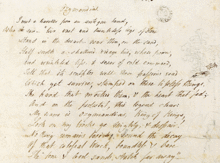 I met a traveller from an antique land,
Who
Stand in the desert near them, on the sand,
Half sunk, a shattered visage lies, whose frown,
And wrinkled lip, & sneer of cold command,
Tell that its sculptor well those passions read
Which yet survive, stamped on these lifeless things,
The hand that mocked them, & the heart that fed;
And on the pedestal, this legend
My name is Ozymandias, King of Kings,
Look on my works, ye mighty, & despair!
No thing remains beside. Round the decay
Of that colossal Wreck, boundless & bare
The lone & level sands stretch far away